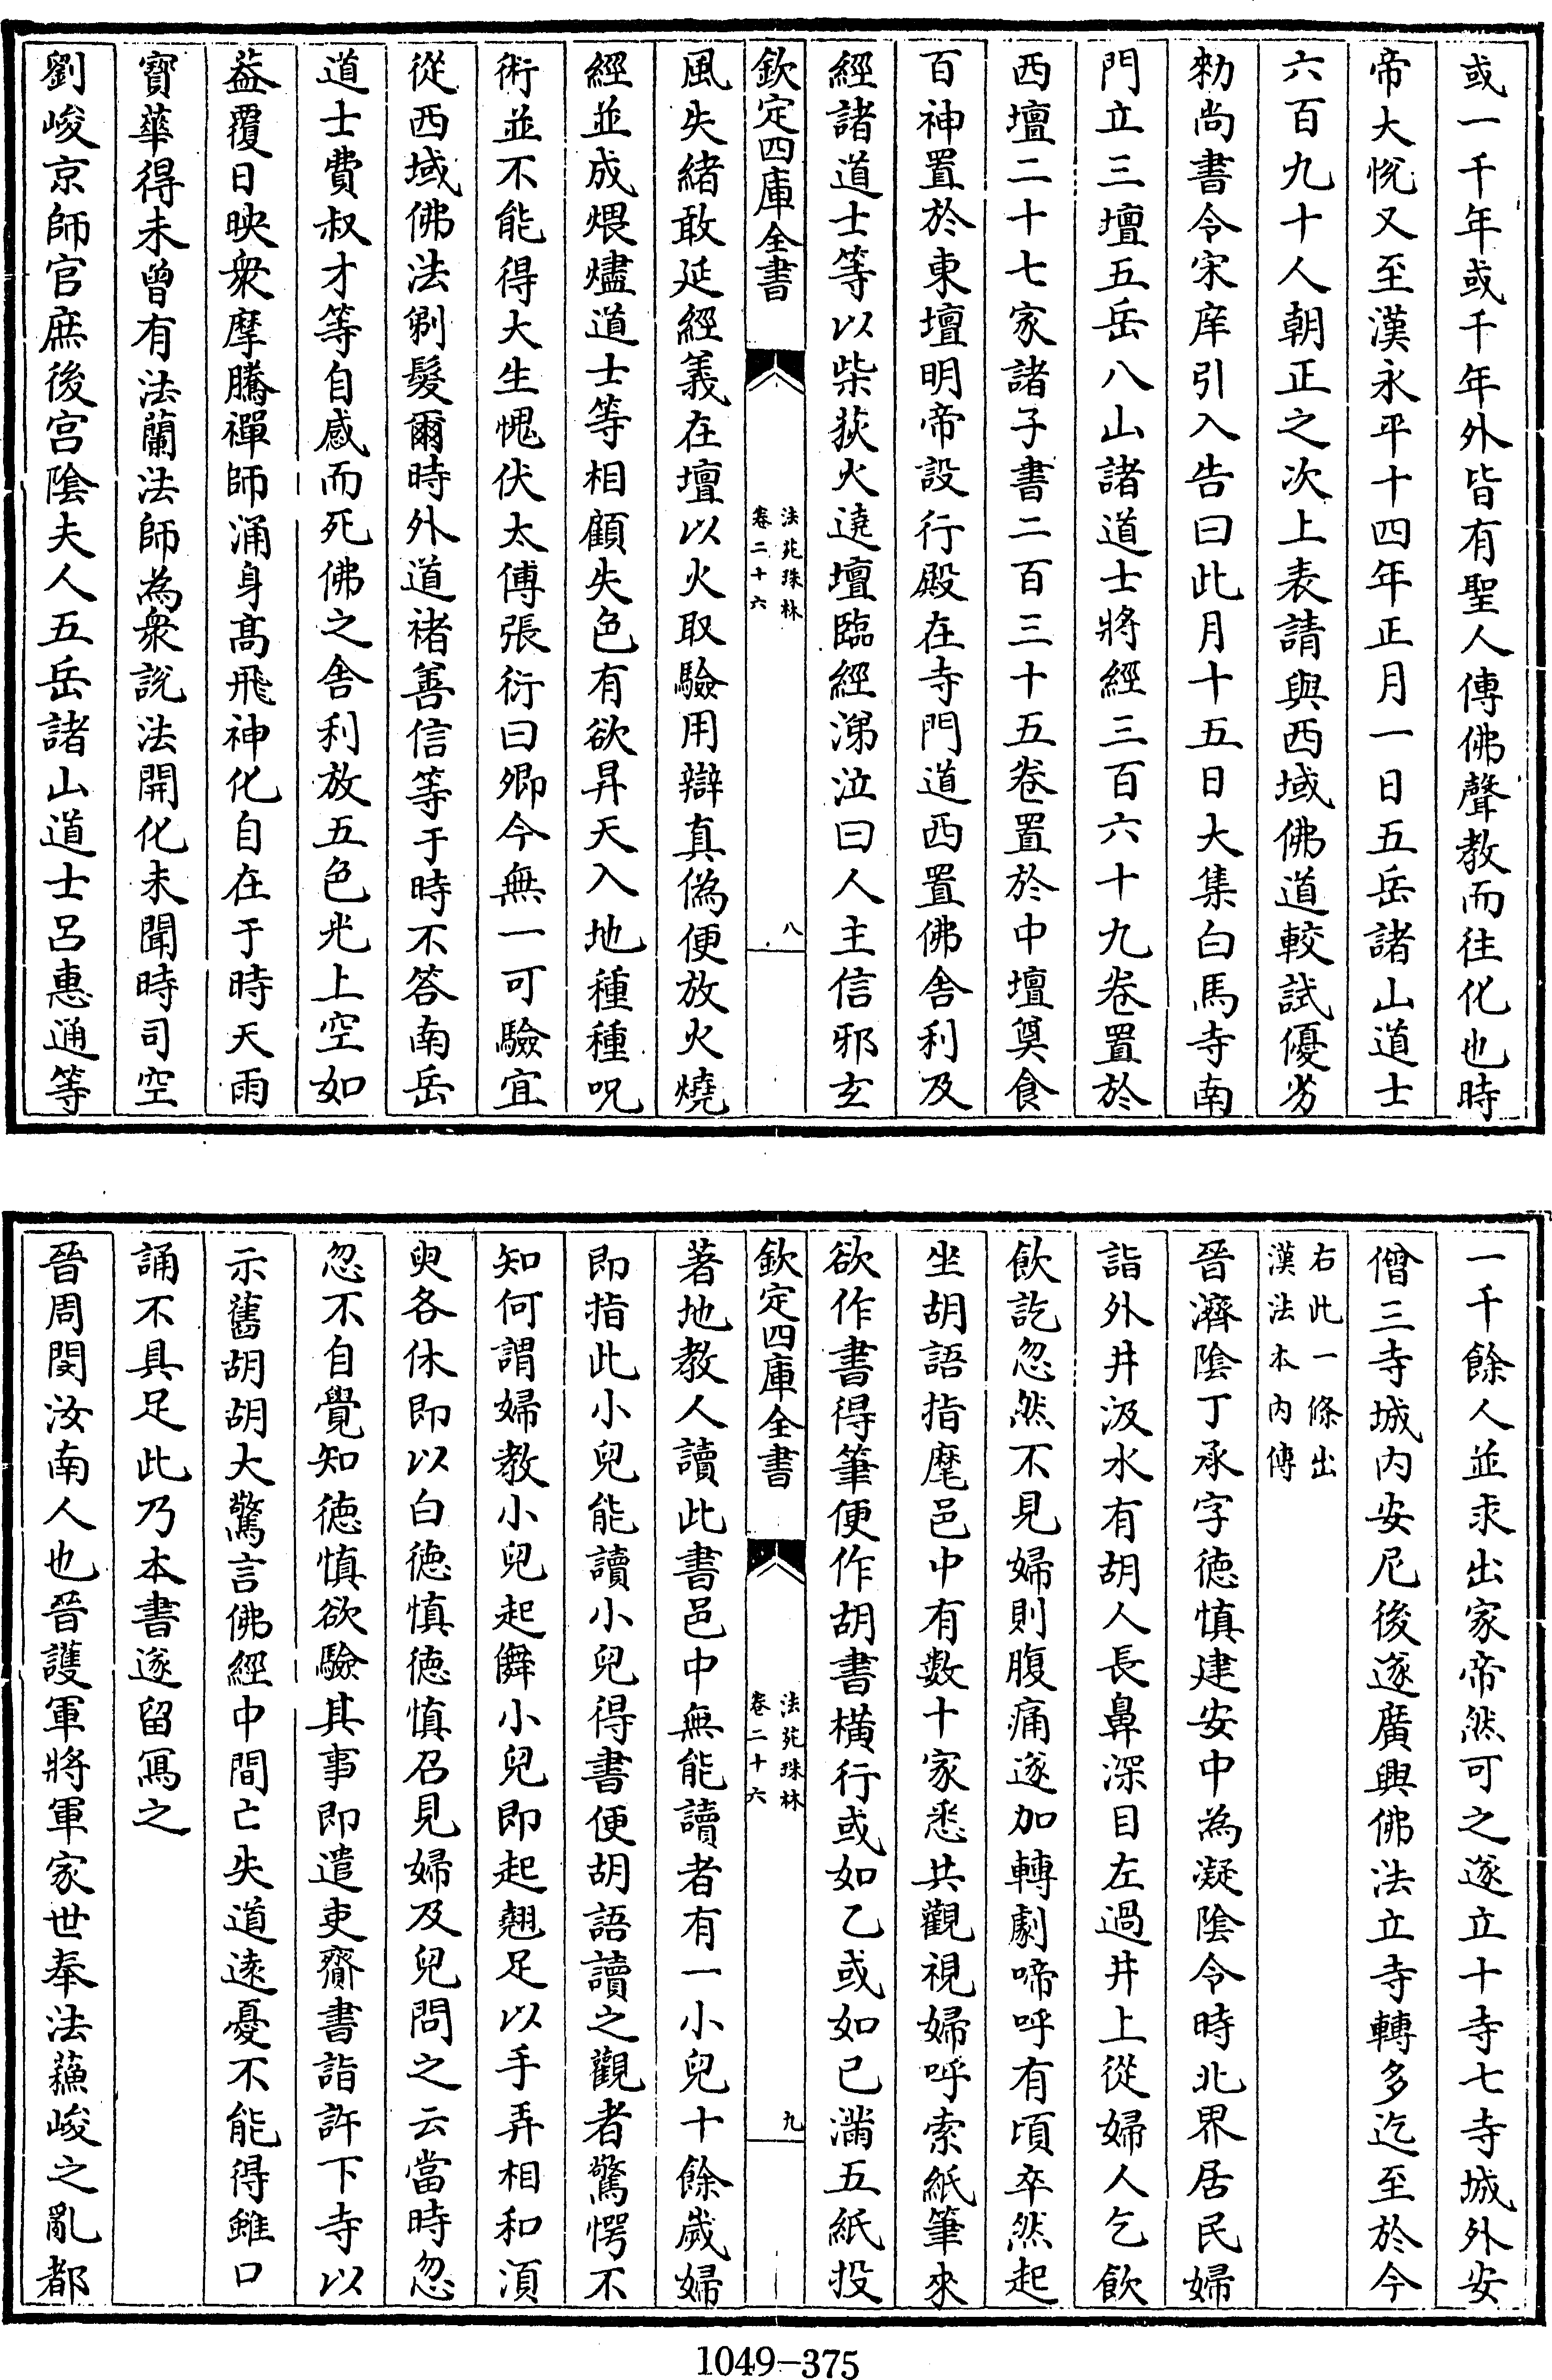 或一千年或千年外皆有聖人傳佛聲教而往化也時
帝大悅又至漢永平十四年正月一日五岳諸山道士
六百九十人朝正之次上表請與西域佛道較試優劣
勑尚書令宋庠引入告曰此月十五日大集白馬寺南
門立三壇五岳八山諸道士將經三百六十九卷置於
西壇二十七家諸子書二百三十五卷置於中壇奠食
百神置於東壇明帝設行殿在寺門道西置佛舍利及
經諸道士等以柴荻火遶壇臨經涕泣曰人主信邪玄
欽定四庫全書
法苑珠林
卷二十六
八
風失緒敢延經義在壇以火取驗用辯真偽便放火燒
經並成煨燼道士等相顧失色有欲昇天入地種種呪
術並不能得大生愧伏太傅張衍曰卿今無一可驗宜
從西域佛法剃髮爾時外道褚善信等于時不答南岳
道士費叔才等自感而死佛之舍利放五色光上空如
葢覆日映衆摩騰禪師涌身高飛神化自在于時天雨
寶華得未曾有法蘭法師為衆説法開化未聞時司空
劉峻京師官庶後宫陰夫人五岳諸山道士呂惠通等
一千餘人並求出家帝然可之遂立十寺七寺城外安
僧三寺城内安尼後遂廣興佛法立寺轉多迄至於今
右此一條出
漢法本内傳
晉濟陰丁承字徳慎建安中為凝陰令時北界居民婦
詣外井汲水有胡人長鼻深目左過井上從婦人乞飲
飲訖忽然不見婦則腹痛遂加轉劇啼呼有頃卒然起
坐胡語指麾邑中有數十家悉共觀視婦呼索紙筆來
欲作書得筆便作胡書橫行或如乙或如已滿五紙投
欽定四庫全書
法苑珠林
卷二十六
九
著地教人讀此書邑中無能讀者有一小兒十餘歲婦
即指此小兒能讀小兒得書便胡語讀之觀者驚愕不
知何謂婦教小兒起儛小兒即起翹足以手弄相和須
臾各休即以白徳慎徳慎召見婦及兒問之云當時忽
忽不自覺知徳慎欲驗其事即遣吏齎書詣許下寺以
示舊胡胡大驚言佛經中間亡失道逺憂不能得雖口
誦不具足此乃本書遂留寫之
晉周閔汝南人也晉護軍將軍家世奉法蘓峻之亂都
1049-375